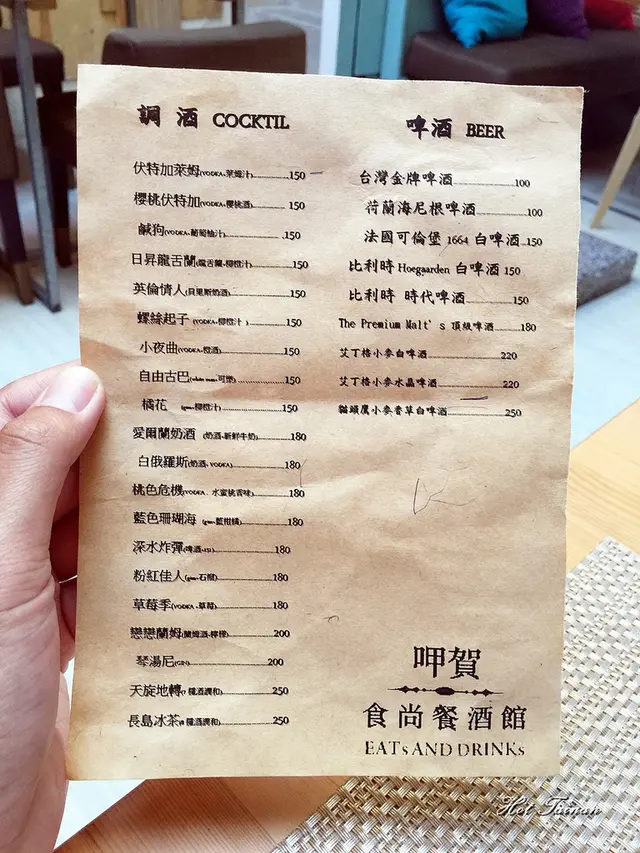 調酒 COCKTIL
伏特加萊姆(VODKA、萊姆汁)..........150
櫻桃伏特加(VODKA、櫻桃酒)..........150
鹹狗(VODKA、葡萄柚汁)..........150
日昇龍舌蘭(龍舌蘭、柳橙汁)..........150
英倫情人(貝里斯奶酒)..........150
螺絲起子(VODKA、柳橙汁)..........150
小夜曲(VODKA、橙酒)..........150
自由古巴(white rum、可樂)..........150
橘花 (gin、柳橙汁)..........150
愛爾蘭奶酒 (奶酒、新鮮牛奶)..........180
白俄羅斯(奶酒、VODKA)..........180
桃色危機(VODKA、水蜜桃香味)..........180
藍色珊瑚海 (gin、藍柑橘)..........180
深水炸彈(啤酒、151)..........180
粉紅佳人(gin、石榴)..........180
草莓季(VODKA、草莓)..........180
戀戀蘭姆(蘭姆酒、檸檬)..........200
琴湯尼(GIN)..........200
天旋地轉(7種酒調和)..........250
長島冰茶(8種酒調和)..........250
啤酒 BEER
台灣金牌啤酒..........100
荷蘭海尼根啤酒..........100
法國可倫堡 1664 白啤酒..150
比利時 Hoegaarden 白啤酒 150
比利時 時代啤酒..........150
The Premium Malt's 頂級啤酒..........180
艾丁格小麥白啤酒..........220
艾丁格小麥水晶啤酒..........220
貓頭鷹小麥香草白啤酒..........250
呷賀
食尚餐酒館
EATs AND DRINKs
Hot Tainan